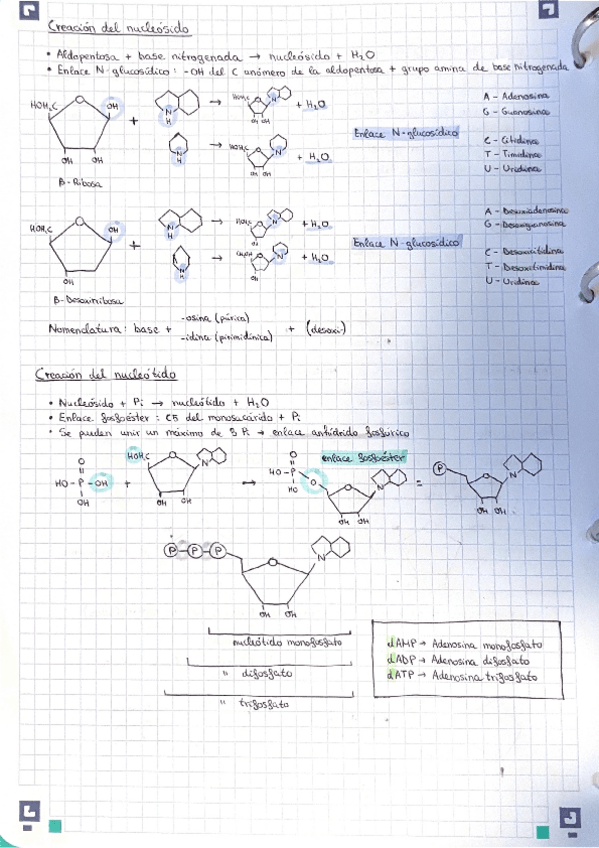 Creación del nucleósido
• Aldopentosa + base nitrogenada → nucleósido + H₂O
• Enlace N-glucosídico: -OH del C anómero de la aldopentosa + grupo amina de base nitrogenada
HOH₂C O OH + N H → HOH₂C O N OH OH + H₂O
OH OH
N H → HOH₂C O N OH OH + H₂O
β-Ribosa
Enlace N-glucosídico
A - Adenosina
G - Guanosina
C - Citidina
T - Timidina
U - Uridina
HOH₂C O OH + N H → HOH₂C O N OH + H₂O
OH
N H → O N OH + H₂O
β-Desoxirribosa
Enlace N-glucosídico
A - Desoxiadenosina
G - Desoxiguanosina
C - Desoxicitidina
T - Desoxitimidina
U - Uridina
Nomenclatura: base + -osina (púrica) + (desoxi-)
-idina (pirimidínica)
Creación del nucleótido
• Nucleósido + Pi → nucleótido + H₂O
• Enlace fosfoéster: C5 del monosacárido + Pi
• Se pueden unir un máximo de 3 Pi → enlace anhídrido fosfórico
enlace fosfoéster
O
HO-P-OH + HOH₂C O N → HO-P O O N = P O N
OH OH OH HO OH OH OH OH
P-P-P O N
OH OH
nucleótido monofosfato
" difosfato
" trifosfato
dAMP → Adenosina monofosfato
dADP → Adenosina difosfato
dATP → Adenosina trifosfato